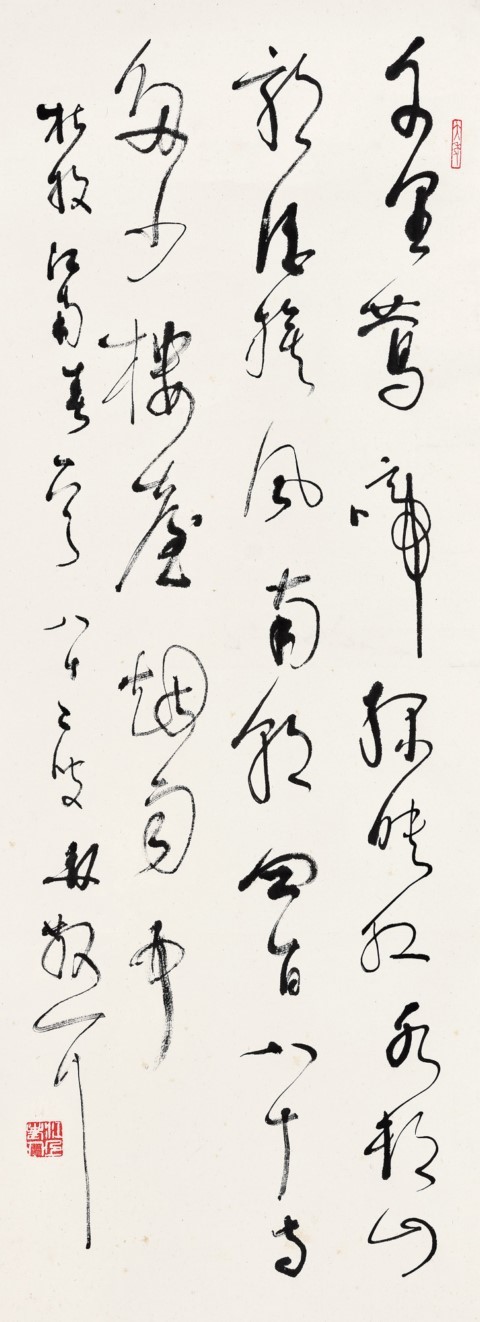 千里鶯啼綠映紅水邨山
郭酒旗風南朝四百八十寺
多少樓臺烟雨中
杜牧江南春 八十二 散耳